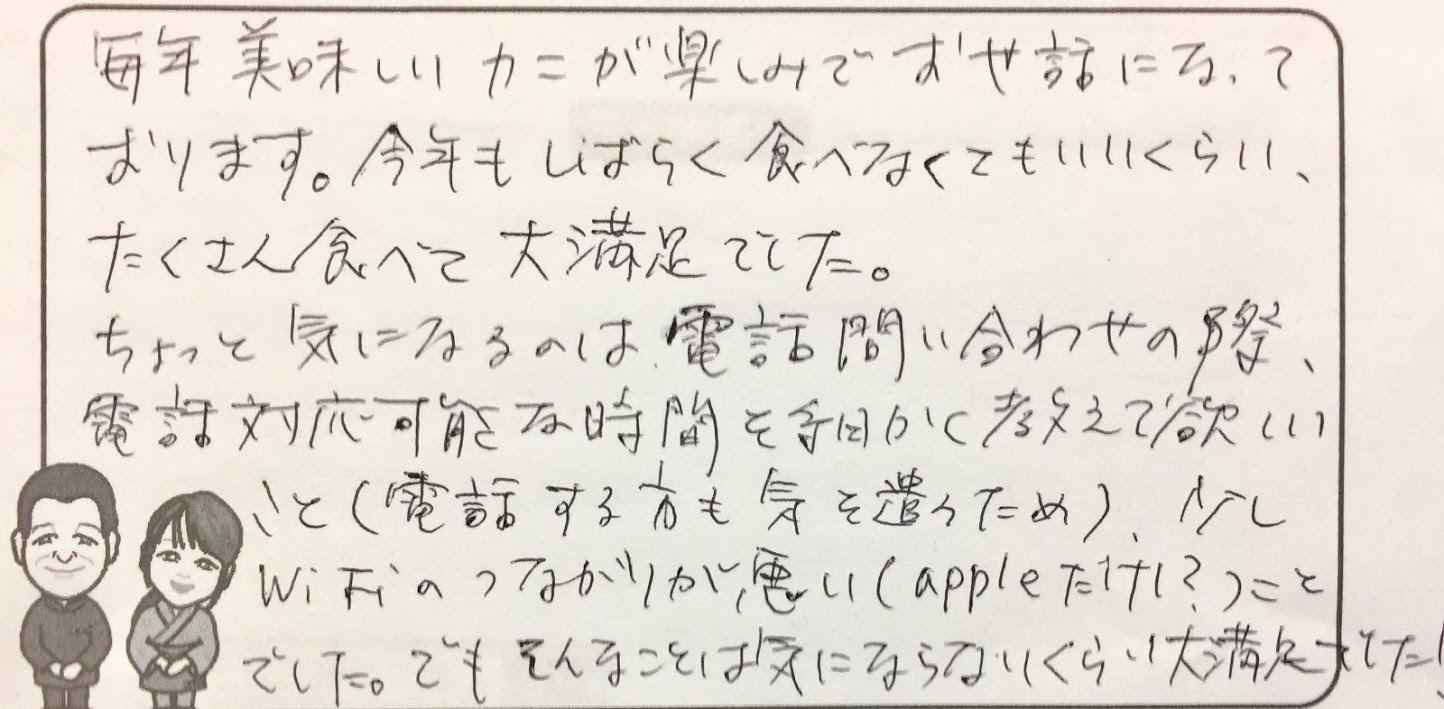 毎年美味しいカニが楽しみでお世話になって
おります。今年もしばらく食べなくてもいいくらい、
たくさん食べて大満足でした。
ちょっと気になるのは電話問い合わせの際、
電話対応可能な時間を細かく教えて欲しい
こと(電話する方も気を遣うため)、少し
WiFiのつながりが悪い(appleだけ?)こと
でした。でもそんなことは気にならないくらい大満足でした!